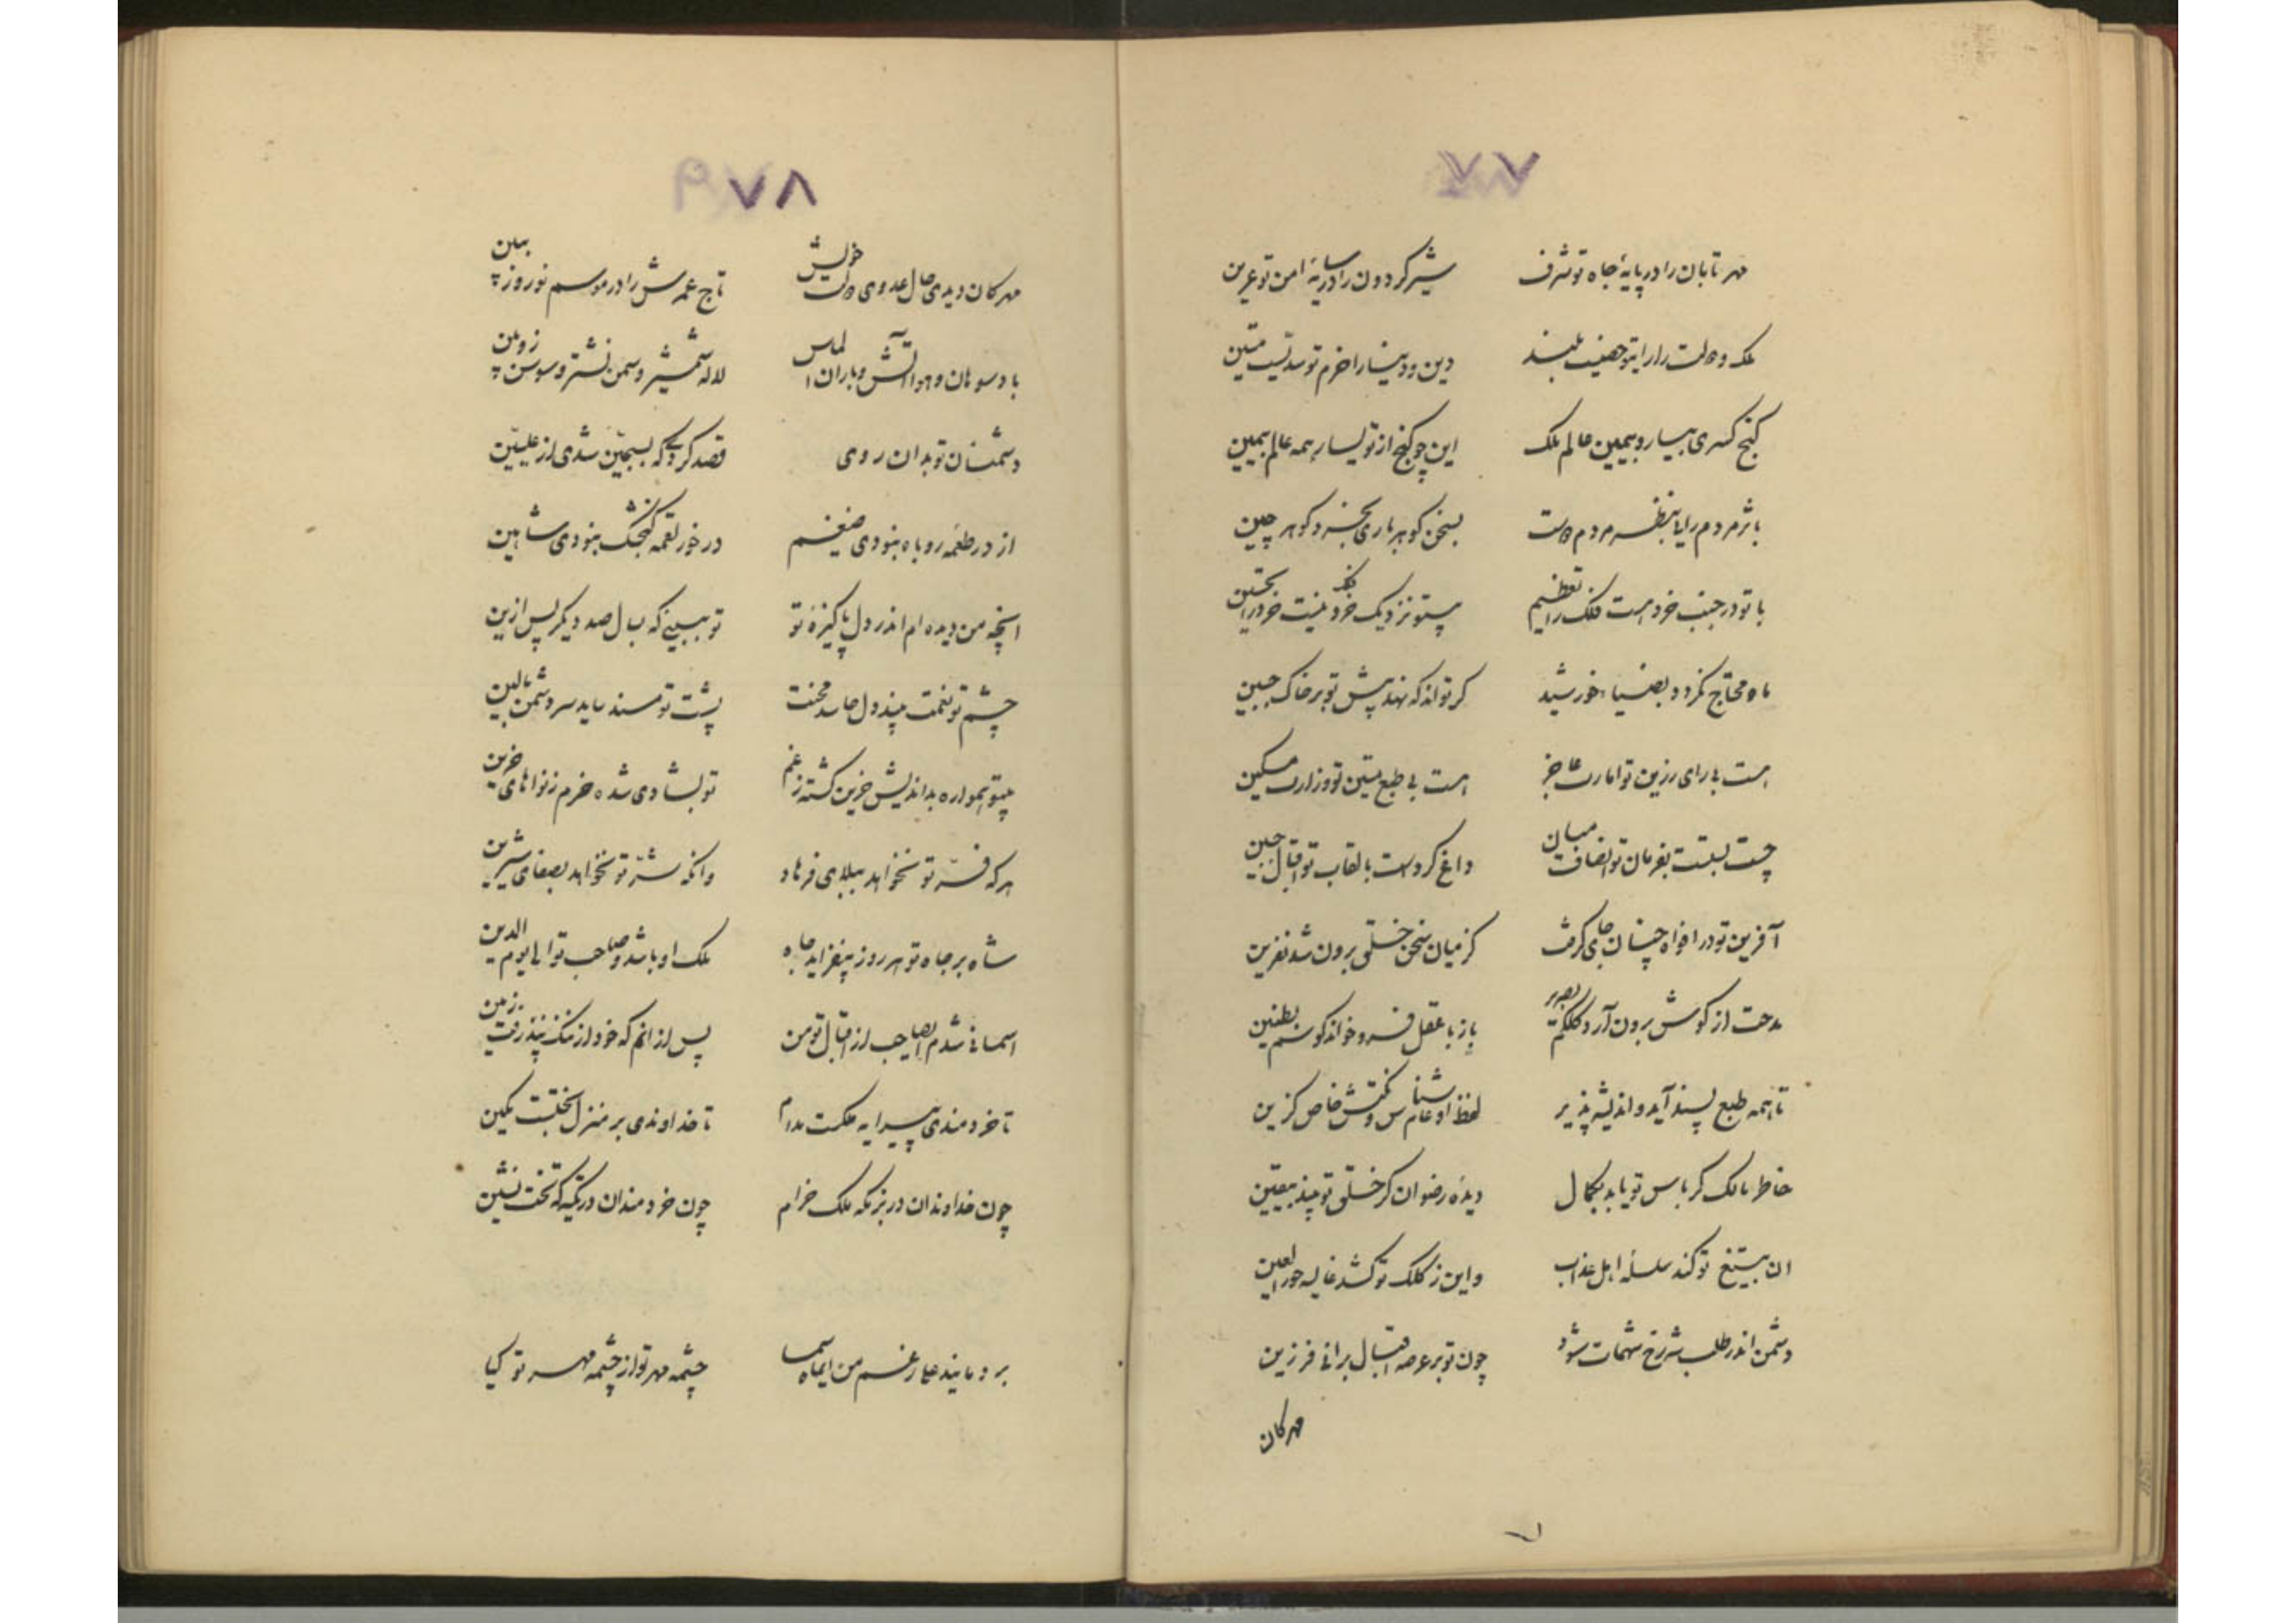 ۷۷
مهر تابان را در پایهٔ جاه تو شرف شیر گردون را در سایهٔ امن تو عرین
ملک و دولت را رایتو حصنیست بلند دین و دینا را حزم تو سدیست متین
گنج کسری بیسار و بیمین عالم ملک این چو گنج از تو یسار همه عالم بیمین
مردم دولت بسخن گوهر باری گوهر چین
با تو در جنب خرد هست فلک را تعظیم خرد نیست خرد را
ماه محتاج نگردد بضیاء خورشید گر تواند که نهد پیش تو بر خاک جبین
هست با رای رزین تو امارت عاجز هست بی طبع متین تو وزارت مسکین
چست بستست بفرمان تو انصاف میان داغ کردست بالقاب تو اقبال جبین
آفرین تو در افواه چنان جای گرفت کز میان سخن خلق برون شد نفرین
مدحت از گوش برون آرد کلکم بصریر باز با عقل فرو خواند گوشم بطنین
تا همه طبع پسند آید و اندیشه پذیر لفظ او عام شناس و نکتش خاص گزین
خاطر مالک گر باس تو یابد بکمال دیدهٔ رضوان گر خلق تو بیند بیقین
ان بتیغ تو کند سلسلهٔ اهل عذاب و این ز کلک تو کشد غالیه حورالعین
دشمن اندر طلب شه رخ شهمات شود چون تو بر عرصه اقبال برانی فرزین
مهرکان
۷۸
مهرکان دیدی حال عدوی دولت خویش تاج عمرش را در موسم نوروز ببین
باد سوهان و هوا آتش و باران الماس لاله شمشیر و سمن نشتر و سوسن زوبین
دشمنان تو بدان روی قصد کردی که بسجین شدی از علیین
از در طعمه روباه بنودی ضیغم در خور لقمه گنجشک بنودی شاهین
انچه من دیده ام اندر دل پاکیزهٔ تو تو ببینی که بسال صد دیگر پس ازین
چشم تو نعمت بیند دل حاسد محنت پشت تو مسند یابد سر دشمن بالین
همواره بداندیش حزین گشته ز غم تو بشادی شده خرم ز نواهای حزین
هر که فر تو نخواهد ببلای فرهاد وانکه شر تو نخواهد بصفای شیرین
شاه بر جاه تو هر روز بیفزاید جاه ملک او باشد و صاحب تو الی یوم الدین
اسمانی شدم ایصاحب از اقبال تو من پس از انم که خود از ننک نپذرفت زمین
تا خردمندی پیرایه حکمت مدام تا خداوندی بر منزل بختست مکین
چون خداوندان در بزمگه ملک خرام چون خردمندان در تکیه گه تخت نشین
بر دمانید عارغم من ایماه سما چشمه مهر تو از چشمه مهر تو گیا